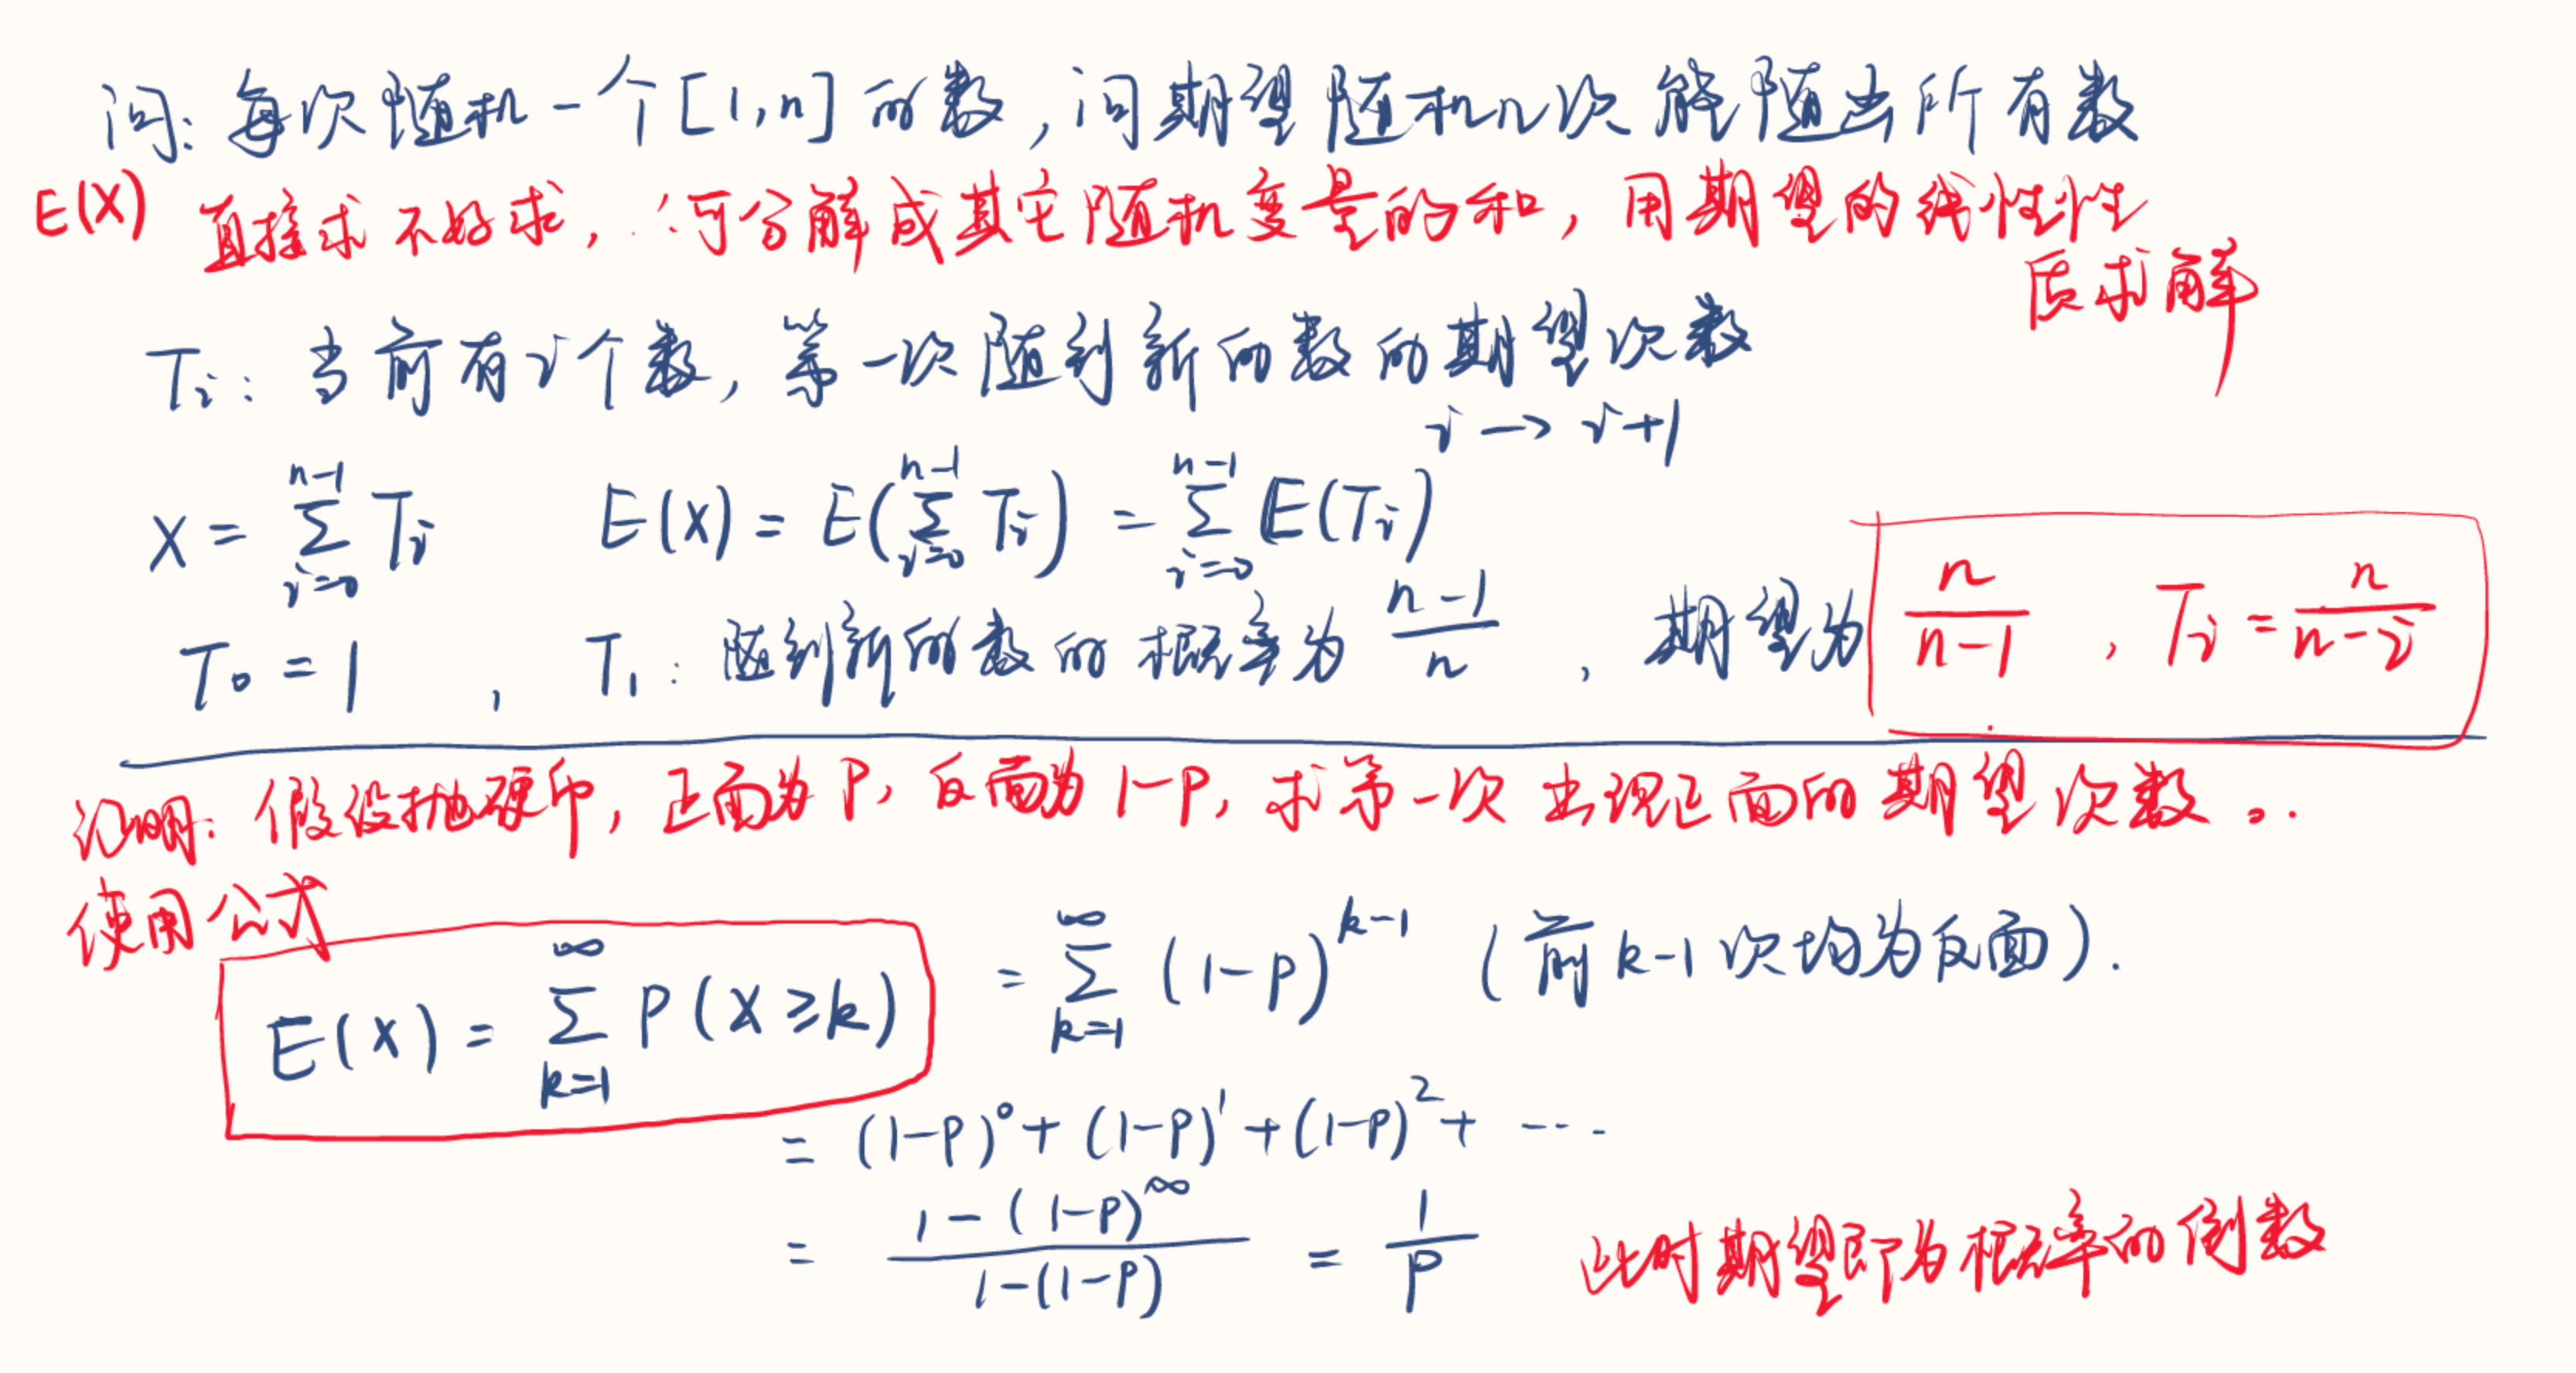 问：每次随机一个[1,n]的数，问期望随机n次能随出所有数
E(X) 直接求不好求，∴可分解成其它随机变量的和，用期望的线性性
质求解
Ti：当前有i个数，第一次随到新的数的期望次数
i → i+1
X = ∑_{i=0}^{n-1} Ti  E(X) = E(∑_{i=0}^{n-1} Ti) = ∑_{i=0}^{n-1} E(Ti)
T0 = 1 , T1：随到新的数的概率为 (n-1)/n , 期望为 n/(n-1) , Ti = n/(n-i)
证明：假设抛硬币，正面为P，反面为1-P，求第一次出现正面的期望次数。.
使用公式
E(X) = ∑_{k=1}^{∞} P(X ≥ k) = ∑_{k=1}^{∞} (1-P)^{k-1} (前k-1次均为反面).
= (1-P)^0 + (1-P)^1 + (1-P)^2 + ····
= (1-(1-P)^∞)/(1-(1-P)) = 1/P 此时期望即为概率的倒数